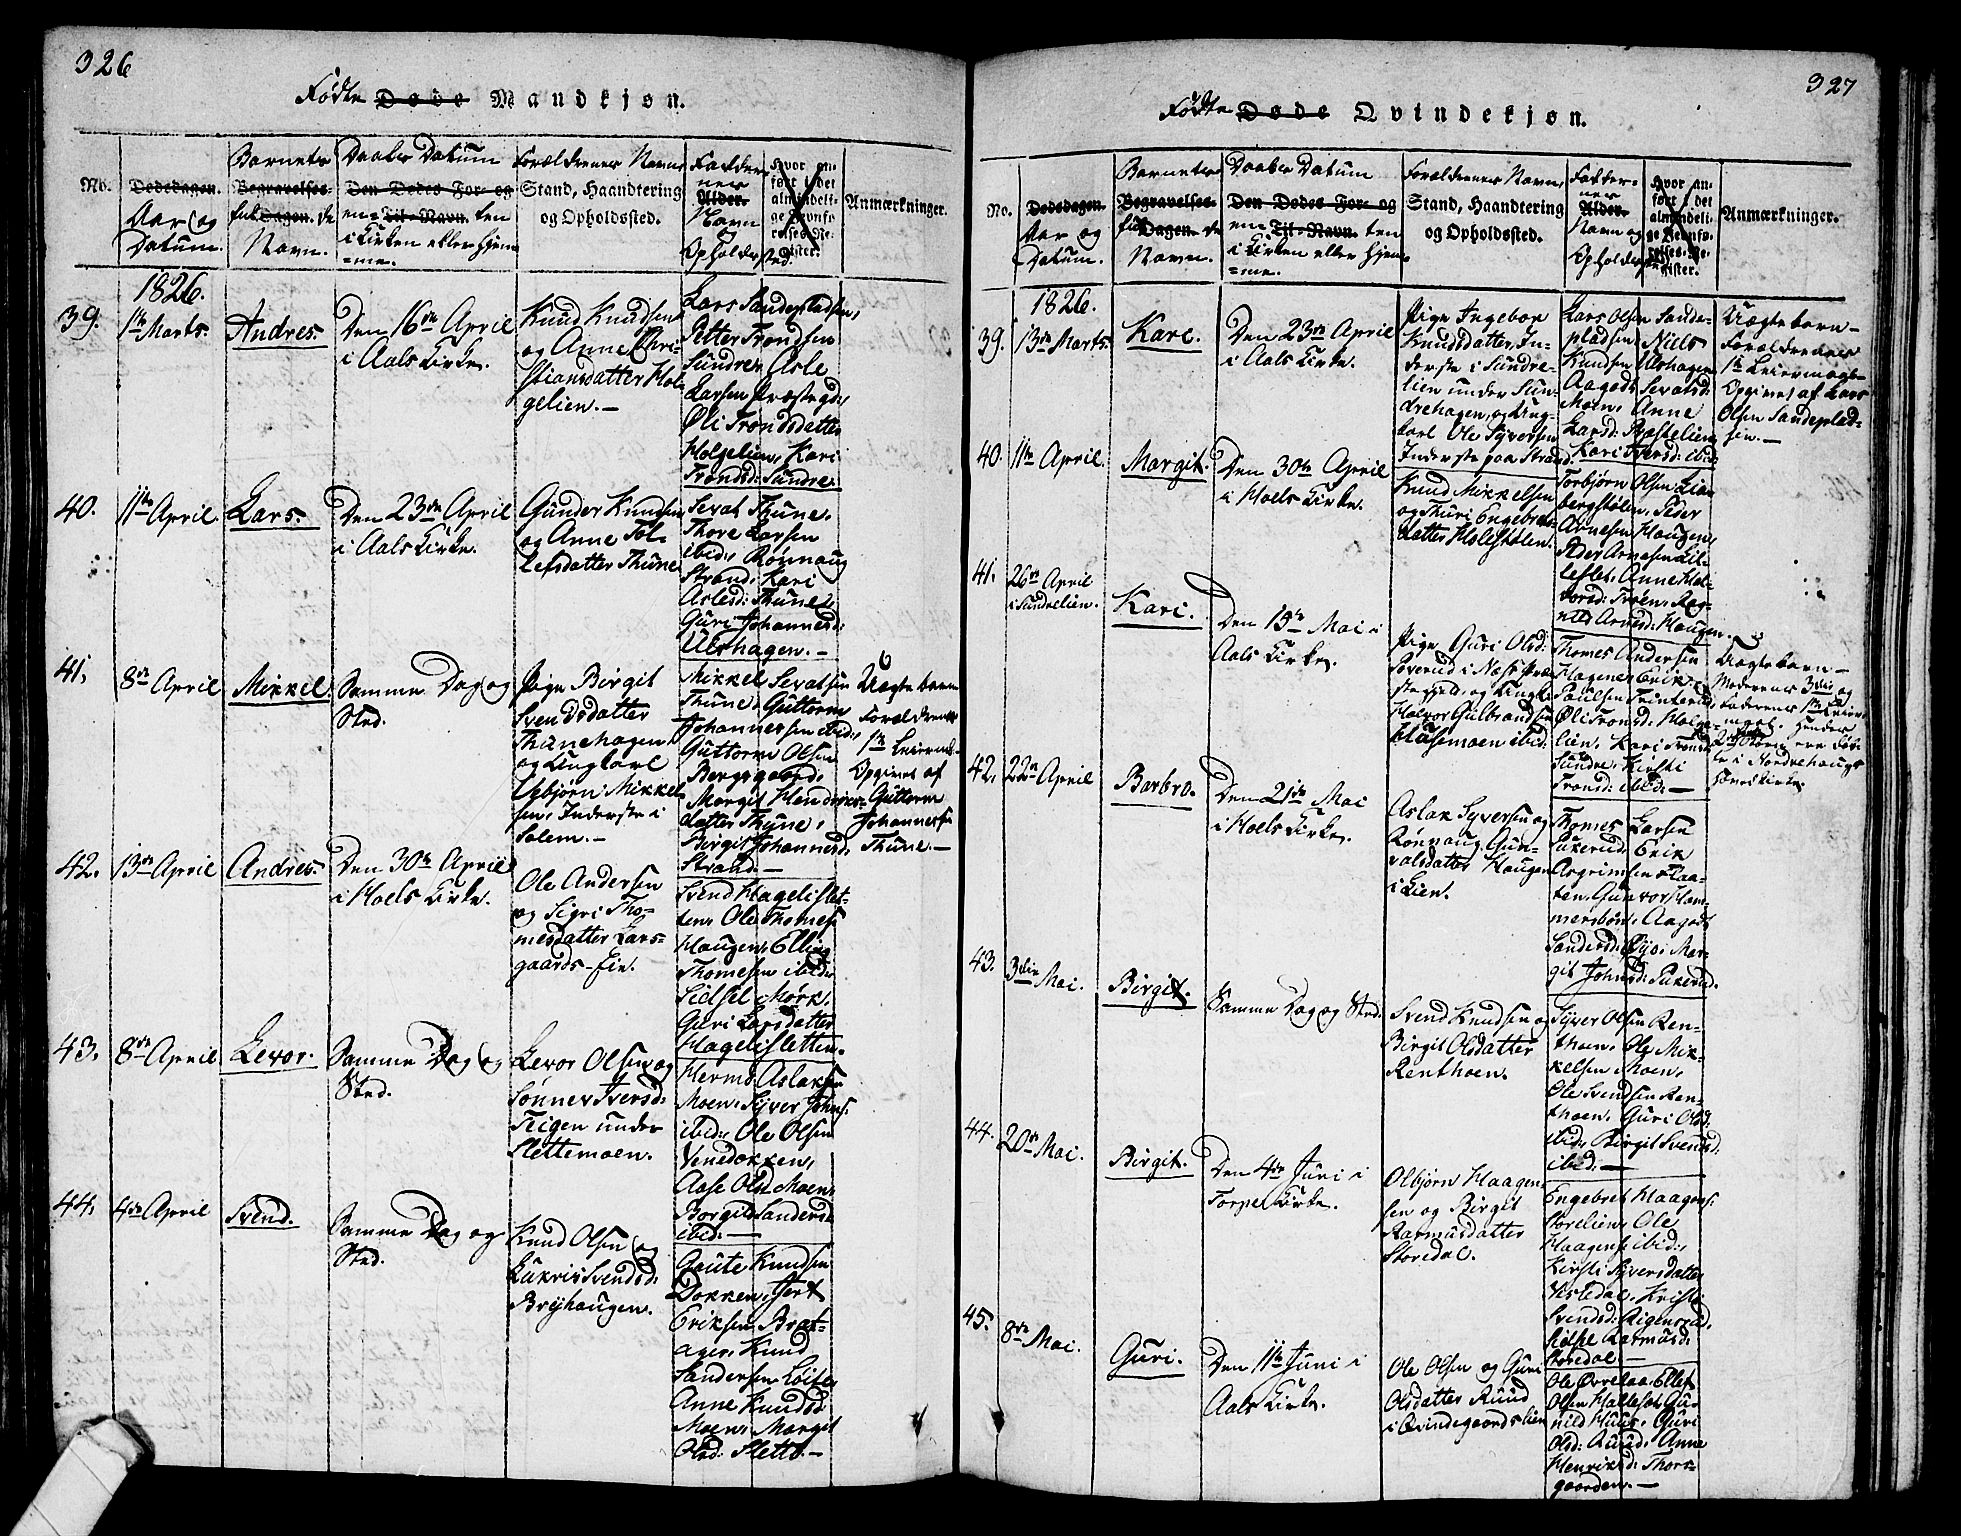 326
Fødte Døde Mandkjøn.
No.
Dødsdagen.
Aar og
Datum.
Barnets
Begravelses-
Dagen. de
Navn.
Daabs Datum
Den Dødes For- og
en= Til-Navn. ten
i Kirken eller hjem
=me.
Forældrenes Navn,
Stand, Haandtering
og Opholdssted.
Fadder-
nes
Alder.
Navn
og
Opholdssted.
Hvor an-
ført i det
almindeli-
ge Jevnfø-
relses-Re-
gister.
Anmærkninger.
1826.
39.
1ste Marts.
Andres.
Den 16de April
i Aals Kirke.
Knud Knudsen
og Anne Chri-
stiansdatter Hol-
gelien.-
Lars Sandepladsen,
Petter Trondsen
Sundre, Asle
Larsen Præstegd,
Øli Trondsdatter
Holgelien, Kari
Trondsd: Sundre.
40.
11te April.
Lars.
Den 23de April
i Aals Kirke.
Gunder Knudsen
og Anne Tol-
lefsdatter Thune
Sevat Thune,
Thore Larsen
ibid, Rønnaug
Strand, Kari
Aslesd: Thune,
Guri Johannesd:
Ulshagen.-
41,
8de April
Mikkel
Samme Dag og
Sted.
Pige Birgit
Svendsdatter
Thunehagen
og Ungkarl
Esbjørn Mikkel-
sen, Inderste i
Solem.-
Mikkel Sevatsen
Thune, Guttorm
Johannessen ibid,
Guttorm Olsen
Berggaard,
Margit Hendrics-
datter Thune,
Birgit Johannesd,
Strand.-
Uægte barn
Forældrenes
1ste Leierm-
Opgivet af
Guttorm
Johannessen
Thune.-
42.
13de April
Andres.
Den 30te April
i Hols Kirke.
Ole Andersen
og Sigri Tho-
mesdatter Lars-
gaards-Eie.
Svend Hagelislet-
ten, Ole Thomess
Haugen, Elling
Thomesen ibid,
Sidsel Mørk,
Guri Larsdatter
Hagelisletten.
43.
8de April
Levor.
Samme Dag og
Sted.
Levor Olsen og
Sønnev Iversd:
Teigen under
Slettemoen.
Hermo Aslaksen
Moen, Syver Johns:
ibid, Ole Olsen
Venedokken,
Aase Olsd Moen,
Borgild Sandersd
ibid.-
44.
4de April
Svend.
Samme Dag og
Sted.
Knud Olsen og
Lukris Svendsd:
Bryhaugen.
Goute Knudsen
Dokken, Jert
Eriksen Brat-
ager, Knud
Sandersen Løite,
Anne Knudsd
Moen, Margit
Olsd: Slette.-
327
Fødte Døde Qvindekjøn.
No.
Dødsdagen.
Aar og
Datum.
Barnets
Begravelses-
Dagen. de
Navn.
Daabs Datum
Den Dødes For- og
en= Til-Navn. ten
i Kirken eller hjem
=me.
Forældrenes Navn,
Stand, Haandtering
og Opholdssted.
Fadder-
nes
Alder.
Navn og
Opholdssted
Hvor an-
ført i det
almindeli-
ge Jevnfø-
relses-Re-
gister.
Anmærkninger.
1826.
39.
13de Marts.
Kari.
Den 23de April
i Aals Kirke.
Pige Ingebor
Knudsdatter, In-
derste i Sundre-
lien under Sun-
drehagen, og Ung-
karl Ole Syversen
Inderste paa Strand.
Lars Olsen Sande-
pladsen, Niels
Knudsen Ulshagen
Aagodt Sevatsd:
Moen, Anne
Larsd: Præstelien,
Kari Iversd: ibid
Uægte barn-
Forældrenes
1ste Leiermaal-
Opgivet af Lars
Olsen Sandeplad-
sen.-
40.
11te April.
Margit.
Den 30te April
i Hols Kirke.
Knud Mikkelsen
og Thuri Engebrets-
datter Holestølen.
Torbjørn Olsen Lien
bergstølen, Peder
Arnesen Haugen,
Peder Arnesen Lil-
leslet, Anne Hal-
vorsd: Trøen, Rag-
nild Arnesd: Haugen.
41.
26de April
i Sundrelien.
Kari.
Den 15de Mai i
Aals Kirke.
Pige Guri Olsd:
Soverud i Næss Præ-
stegield, og Ungkl
Halvor Gulbrandsen
Klusemoen ibid.
Thomes Andersen
Hagene, Erik
Paulsen Trinterud,
Øli Tronsd: Holge-
lien, Kari Trondsd
Sundre, Kirsti
Tronsd: ibid.-
Uægte barn-
Moderens 3die og
Faderens 1ste Leier-
maal. Hendes
2 første Børn ere fød-
te i Nordrehougs
Hoved Kirke.
42.
22de April
Barbro.
Den 21de Mai
i Hols Kirke.
Aslak Syversen og
Rønnaug Gun-
valsdatter Haugen
i Lien.
Thomes Larsen
Sukerud, Erik
Asgrimsen Flaa-
ten, Gunvor Ham-
mersbøen, Aagodt
Sandersd: Eye, Mar-
git Johnsd: Sukerud.
43.
3die Mai.
Birgit.
Samme Dag og Sted.
Svend Knudsen og
Birgit Olsdatter
Renthoen.
Syver Olsen Ren-
thoen, Ole Mik-
kelsen Moen,
Ole Svendsen Ren-
thoen, Guri Olsd:
ibid, Birgit Svendsd,
ibid.-
44.
20de Mai.
Birgit.
Den 4de Juni i
Torpe Kirke.
Olbjørn Haagen-
sen og Birgit
Rasmusdatter
Storedal.
Engebret Haagens:
Storelien, Ole
Haagense ibid,
Kirsti Syversdatter
Visledal, Kristi
Svendsd: Rigensrud,
Sidsel Rasmusd:
Storedal.-
45.
8de Mai.
Guri.
Den 11te Juni i
Aals Kirke.
Ole Olsen og Guri
Olsdatter Ruud
i Qvindegaardslien
Ole Øvrelaa, Ellef
Olsen Hallesat, Gu-
nild Huus, Guri
Olsd: Ruud, Anne
Henriksd: Thors-
gaarden.-